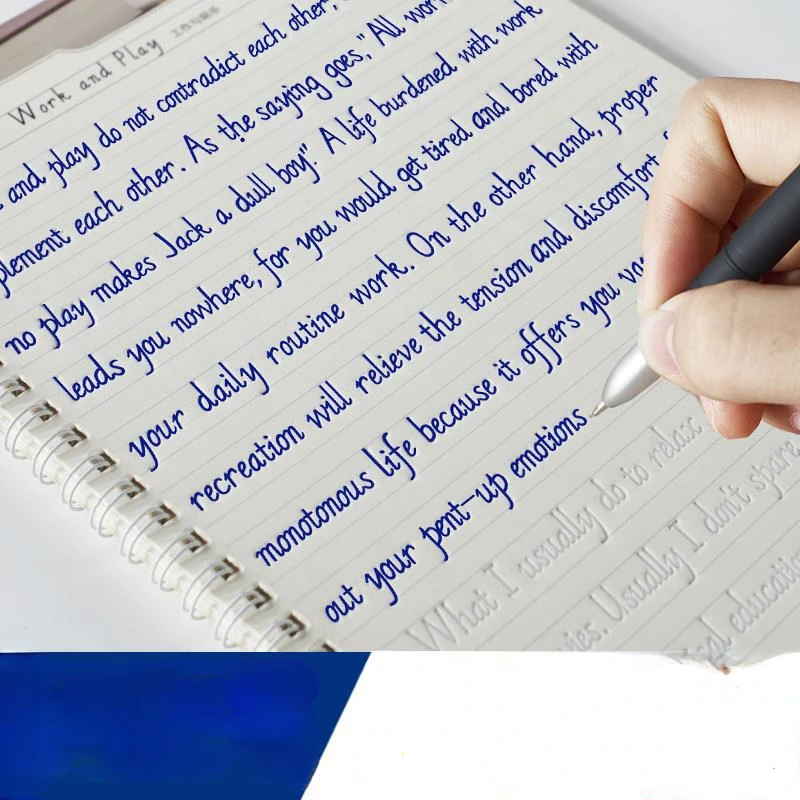 Work and Play 工作与娱乐
and play do not contradict each other,
plement each other. As the saying goes,"All work
no play makes Jack a dull boy". A life burdened with work
leads you nowhere, for you would get tired and bored with
your daily routine work. On the other hand, proper
recreation will relieve the tension and discomfort
monotonous life because it offers you
out your pent-up emotions
What I usually do to relax
Usually I don't spare
education